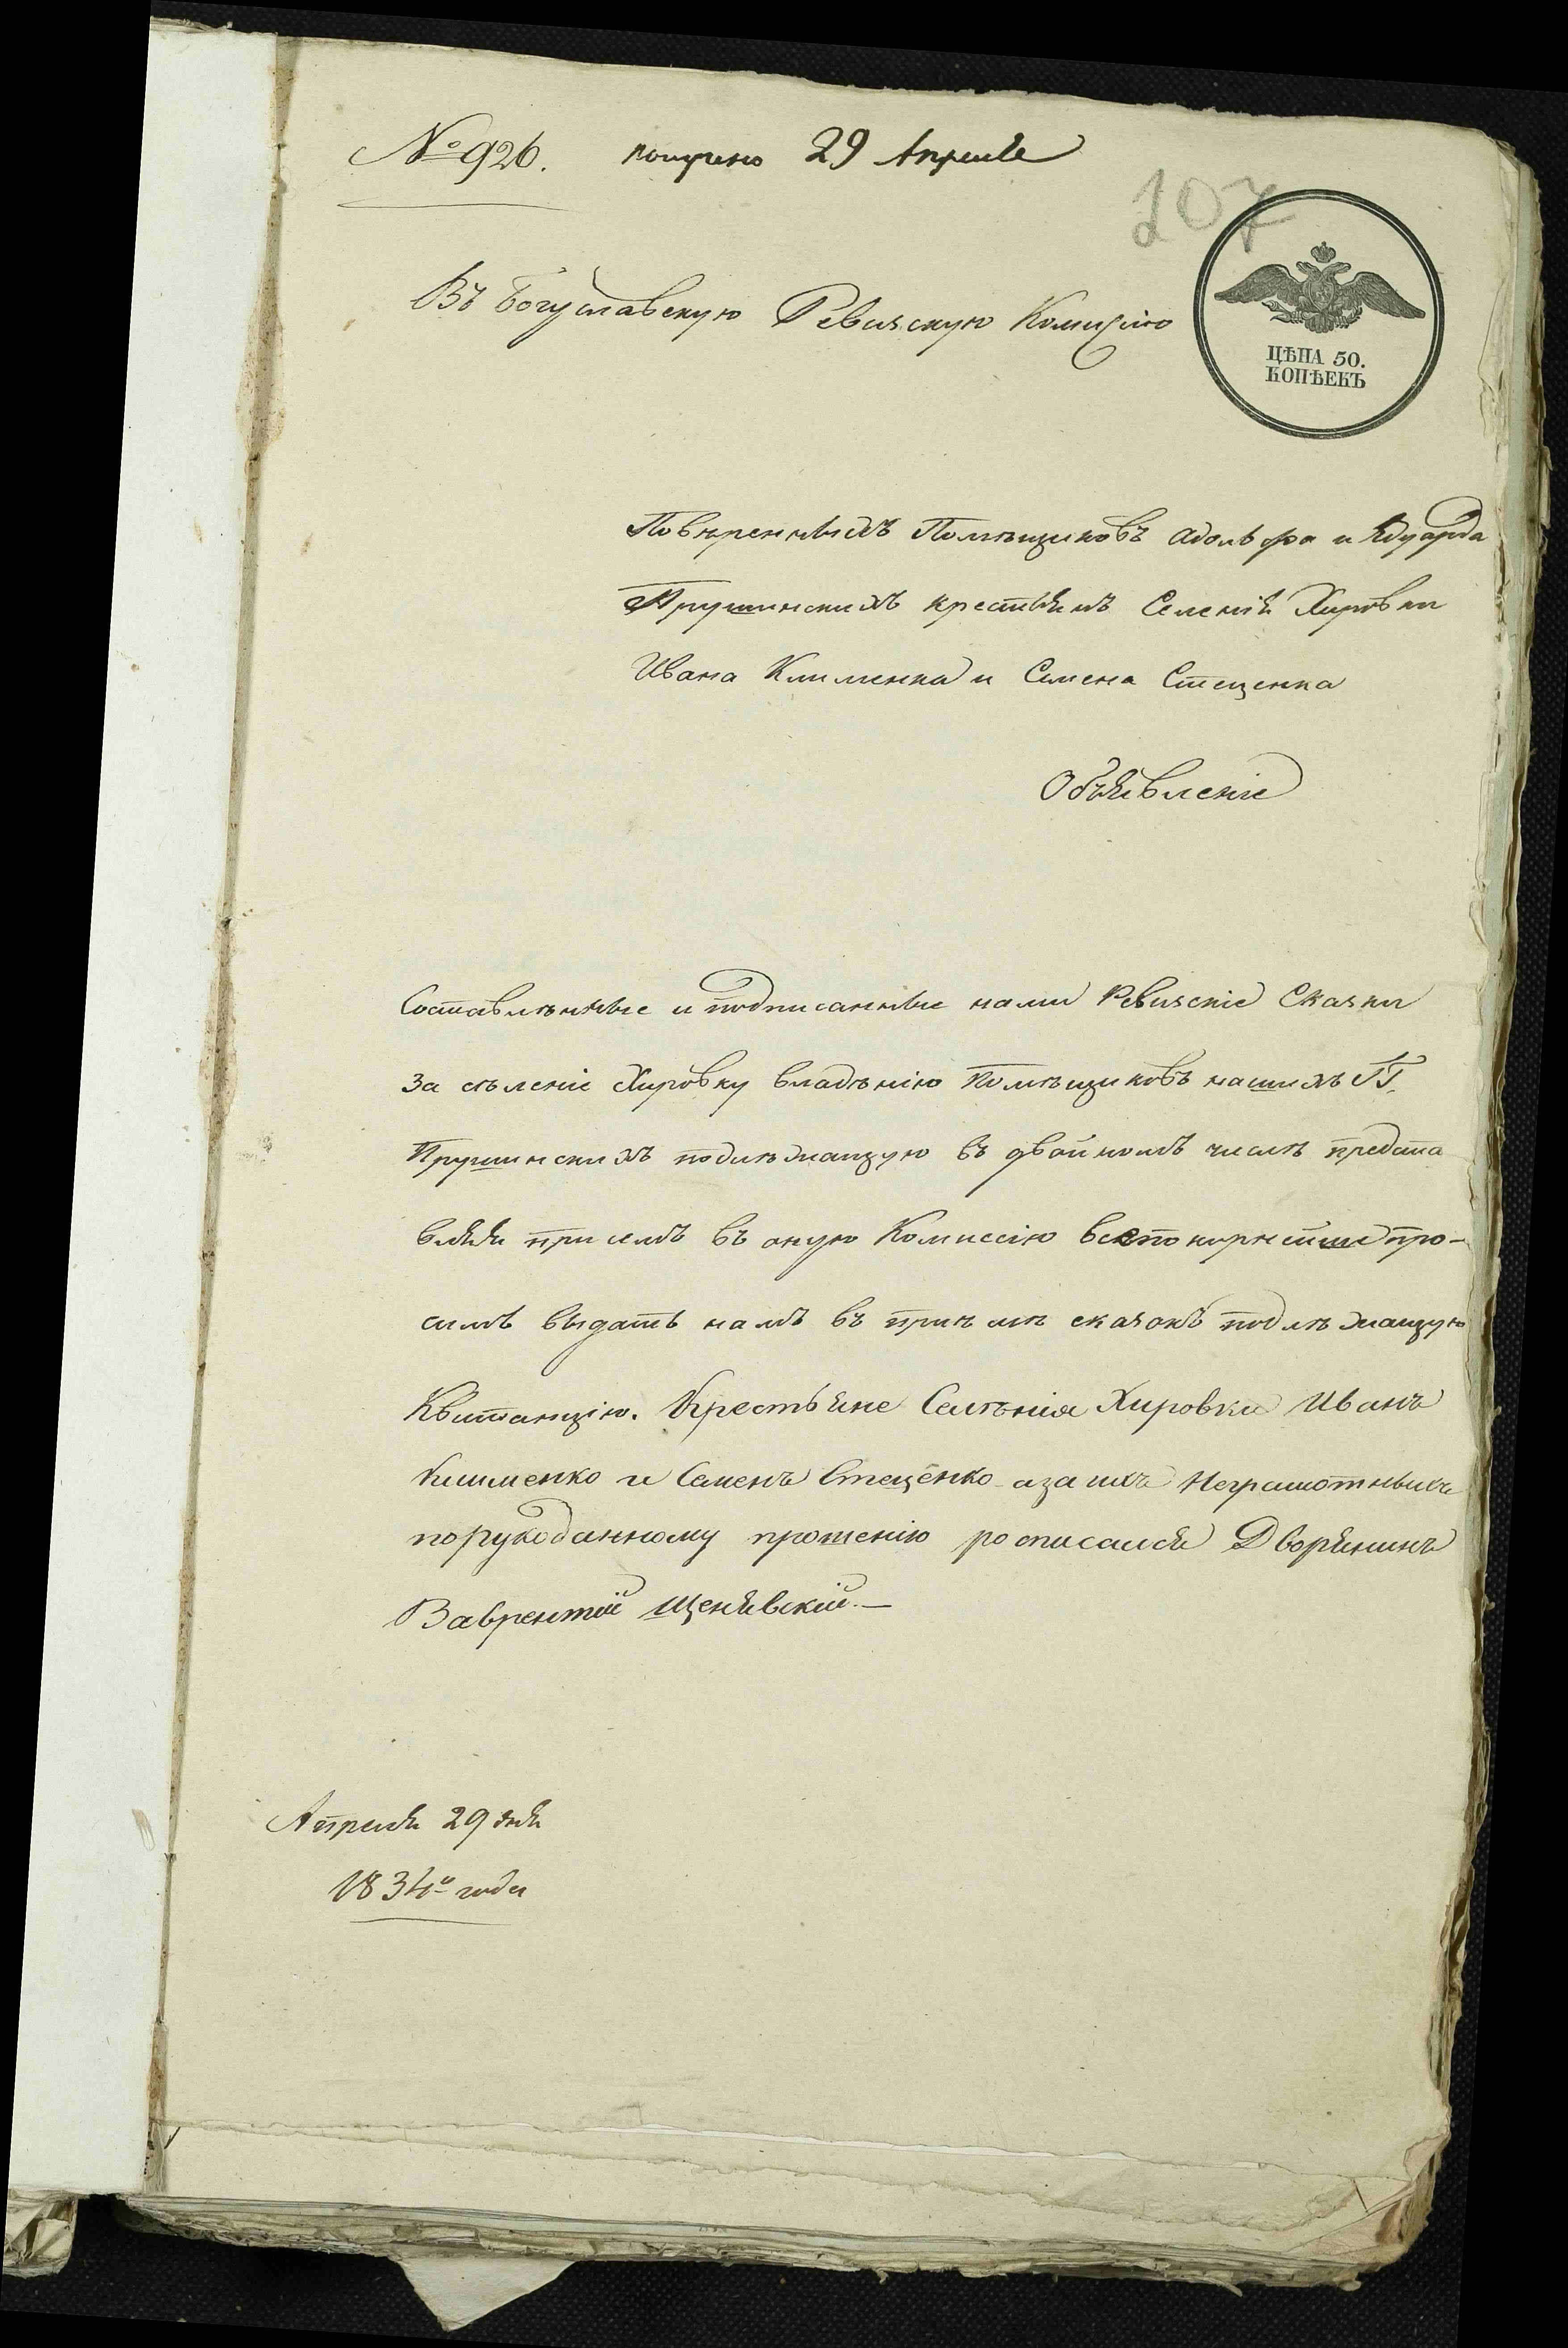 № 926. получено 29 Апреля
107
Въ Богуславскую Ревизскую Комисію
ЦѢНА 50.
КОПѢЕКЪ
Повѣренныхъ Помѣщиковъ Адольфа и Эдуарда
Прушинскихъ крестьянъ Селенія Хировки
Ивана Клименка и Семена Стеценка
Объявленіе
Составлѣнные и подписанные нами Ревизскіе Сказки
За сѣленіе Хировку владѣнію Помѣщиковъ нашихъ ГГ.
Прушинскихъ подлѣжащую въ двойномъ числѣ предста
вляя при семъ въ оную Комиссію всепокорнейше про-
симъ выдать намъ въ пріемѣ сказокъ подлѣжащую
Квитанцію. Крестьяне Селѣнія Хировки Иванъ
Клименко и Семенъ Стеценко а за ихъ Неграмотныхъ
по рукоданному прошенію росписался Дворянинъ
Лаврентій Щенявскій. —
Апреля 29 дня
1834го года